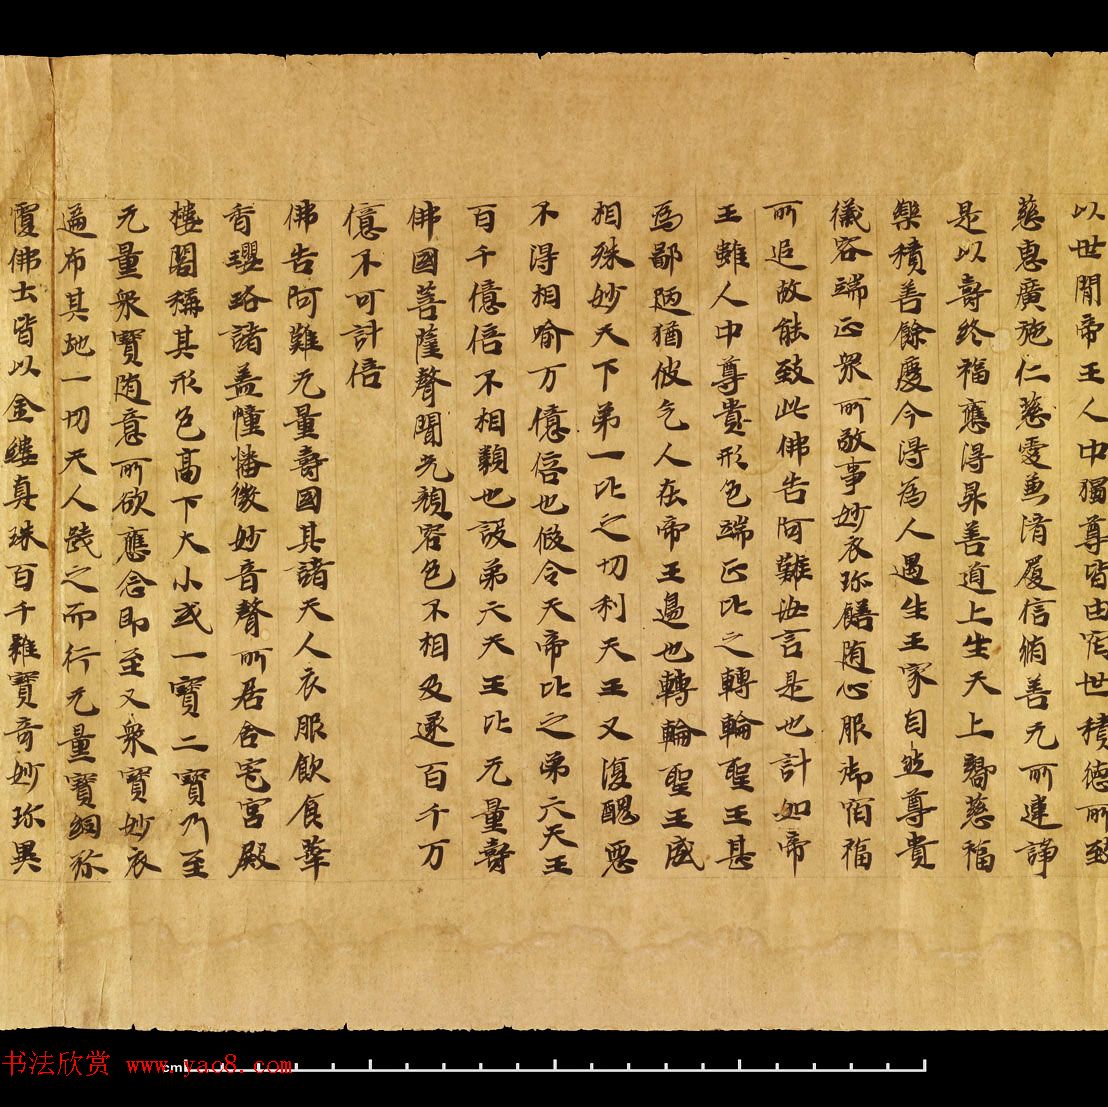 以世間帝王人中獨尊皆由宿世積德所致
慈惠廣施仁慈愛兼濟履信脩善无所違諍
是以壽終福應得昇善道上生天上嚮慈福
樂積善餘慶今得為人遇生王家自然尊貴
儀容端正衆所敬事妙衣珎饍随心服御宿福
所追故能致此佛告阿難汝言是也計如帝
王雖人中尊貴形色端正比之轉輪聖王甚
為鄙陋猶彼乞人在帝王邊也轉輪聖王威
相殊妙天下弟一比之切利天王又復醜惡
不得相喻万億倍也假令天帝比之弟六天王
百千億倍不相類也設弟六天王比无量壽
佛國菩薩聲聞光顏容色不相及逮百千万
億不可計倍
佛告阿難无量壽國其諸天人衣服飲食華
香瓔珞諸盖幢幡微妙音聲所居舍宅宮殿
樓閣稱其形色高下大小或一寶二寶乃至
无量衆寶随意所欲應念即至又衆寶妙衣
遍布其地一切天人踐之而行无量寶網弥
覆佛土皆以金縷真珠百千雜寶奇妙珎異
书法欣赏 www.yac8.com
cm